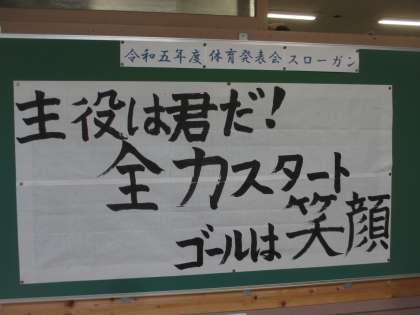 令和五年度 体育発表会 スローガン
主役は君だ!
全力スタート
ゴールは笑顔